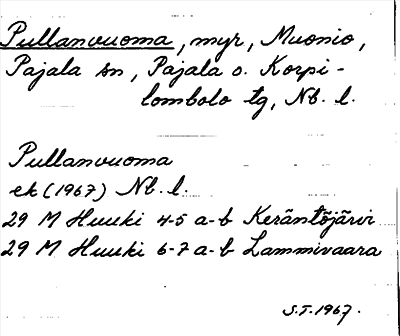 Pullanvuoma, myr, Muonio,
Pajala sn, Pajala o. Korpi-
lombolo tg, Nb. l.
Pullanvuoma
ek (1967) Nb. l.
29 M Huuki 4-5 a-b Keräntöjärvi
29 M Huuki 6-7 a-b Lammivaara
S.T. 1967.